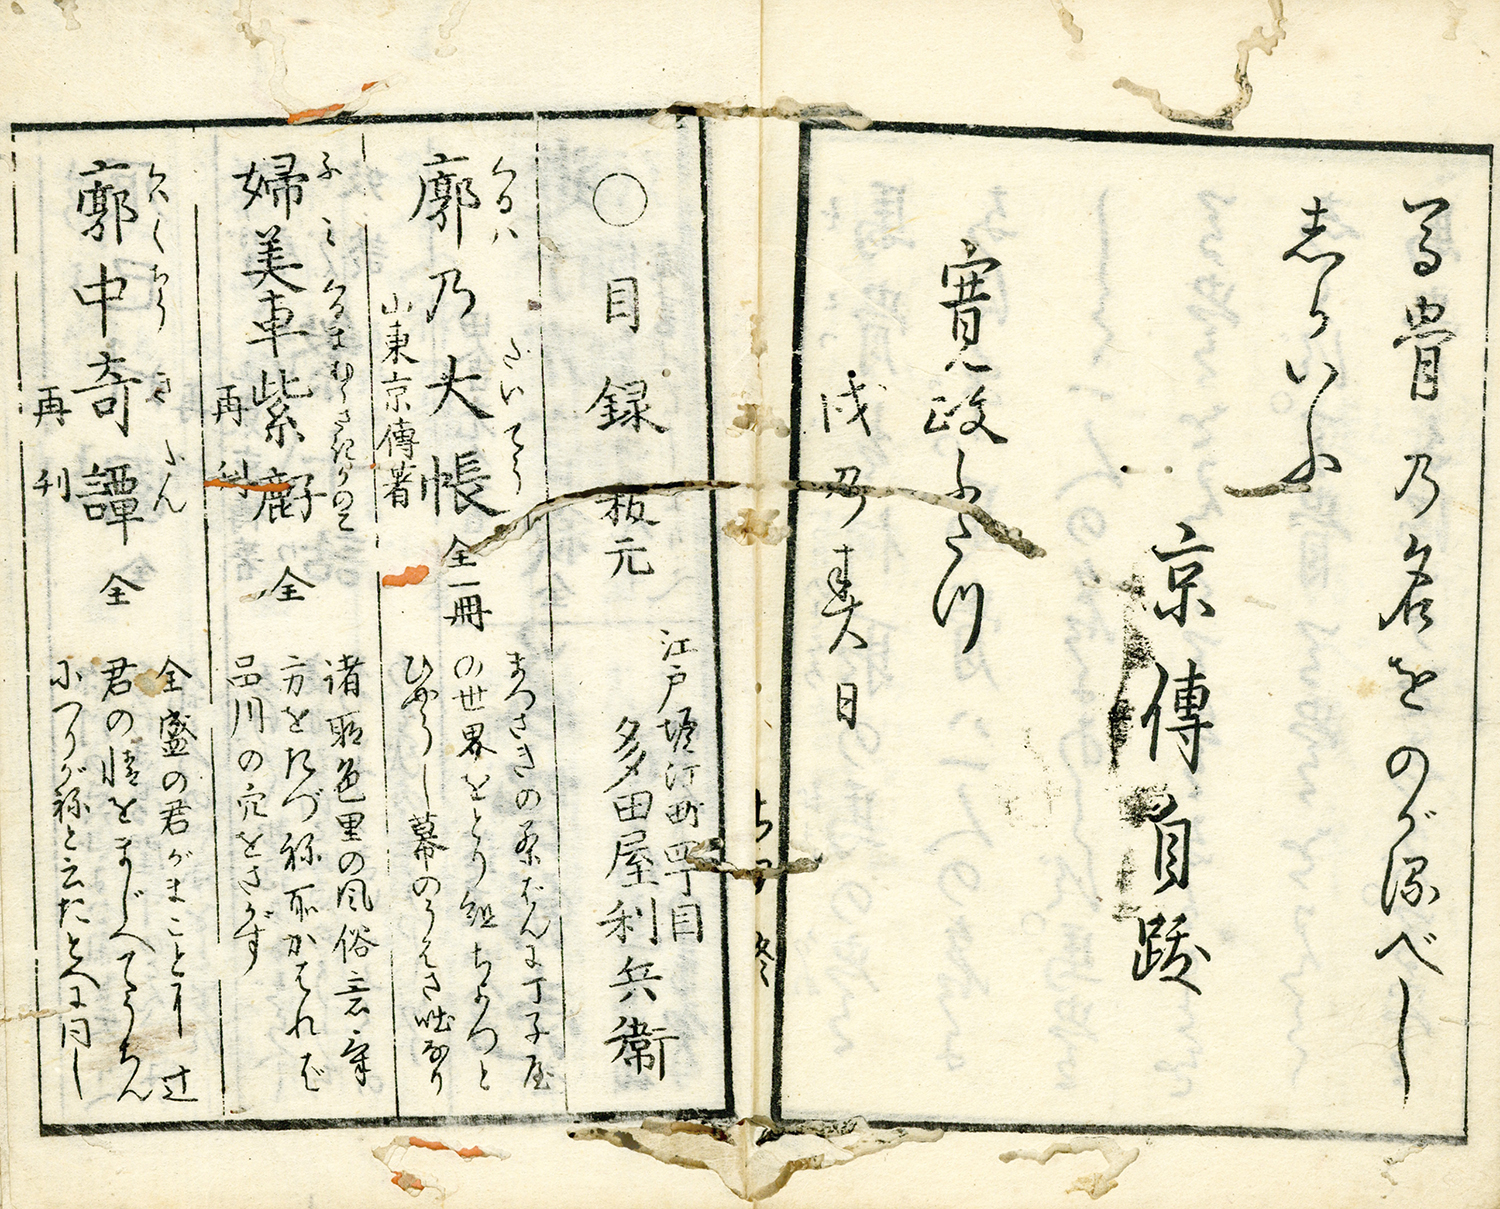 る冑乃名をのがるべし
しかいふ
京傳自跋
寛政ふたつ
戌乃春日
〇目録 板元
江戸堀江町四丁目
多田屋利兵衛
くるハ たいてう
廓乃大帳 全一冊
山東京傳著
まつさきの茶ばんに丁子屋
の世界をとり組ちよつと
ひやうし幕のうへき咄なり
ふみくるまむらさきかのこ
婦美車紫鹿子 全
再刻
諸所色里の風俗言葉
方をたづね有かはれば
品川の穴をさがす
くハくちうきたん
廓中奇譚 全
再刊
全盛の君がまことに辻
君の情をまじへてうちん
につりがねと云たとへに同し